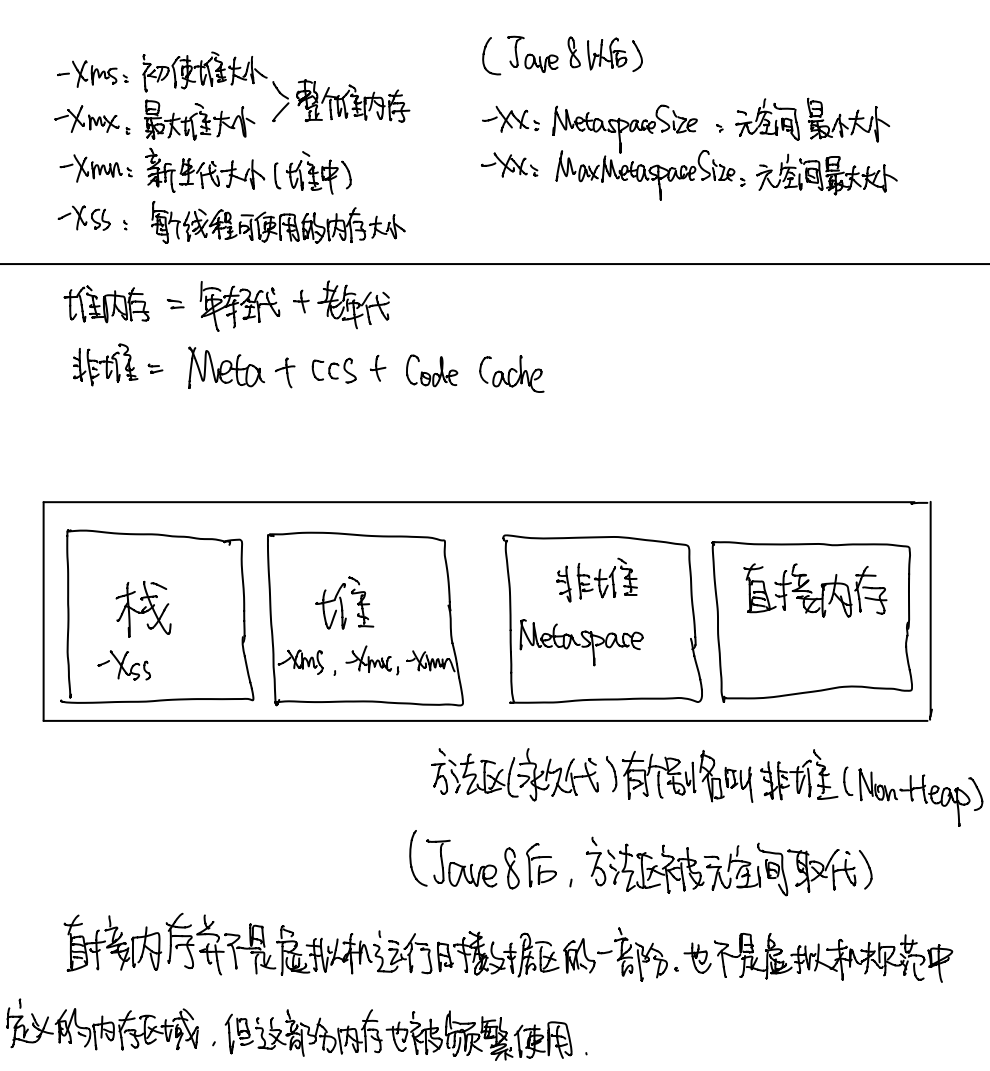 -Xms: 初使堆大小
-Xmx: 最大堆大小
> 整个堆内存
-Xmn: 新生代大小(堆中)
-Xss: 每个线程可使用的内存大小
(Jave 8 以后)
-XX: MetaspaceSize: 元空间最小大小
-XX: MaxMetaspaceSize: 元空间最大大小
堆内存 = 年轻代 + 老年代
非堆 = Meta + CCS + Code Cache
栈
-Xss
堆
-Xms, -Xmx, -Xmn
非堆
Metaspace
直接内存
方法区(永久代)有个别名叫非堆(Non-Heap)
(Jave 8后, 方法区被元空间取代)
直接内存并不是虚拟机运行时数据区的一部分. 也不是虚拟机规范中
定义的内存区域, 但这部分内存也被频繁使用.